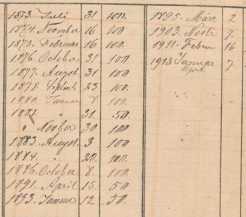 1873. Juli 31 100.
1874. Novbr 16 100
1875. Februar 16 100.
1876. October 31 100
1877. August 31 100
1878. 23 100.
1880. Januar 8 100
1882. " 31. 50.
" Novbr 30 100
1883. August 3 100
1884. " 20. 100.
1886. October 8 100
1891. April 15 50
1893. Januar 12 50
1895. März 2
1903. 7
1911. Febr 16
1913 Januar 7